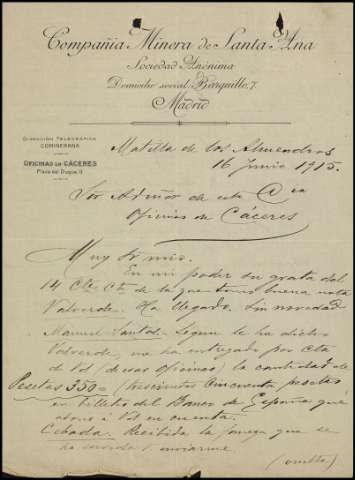 Compañia Minera de Santa Ana
Sociedad Anónima
Domicilio social: Barquillo, 7.
Madrid
DIRECCIÓN TELEGRÁFICA
COMINERANA
OFICINAS EN CÁCERES
Plaza del Duque, 11
Matilla de los Almendros
16 Junio 1915.
Sor Admor de esta Cia
Oficinas de Cáceres
Muy Sr mio.
En mi poder su grata del
14 Cte de la que tomo buena nota
Valverde. Ha llegado. Sin novedad
Manuel Según le ha dicho
Valverde, me ha entregado por cta
de Vd (de esas oficinas) la cantidad de
Pesetas 350= (trescientas cincuenta pesetas
en billetes del Banco de España que
abono á Vd en cuenta.
Cebada. Recibida la fanega que se
ha servido enviarme.
(vuelta)